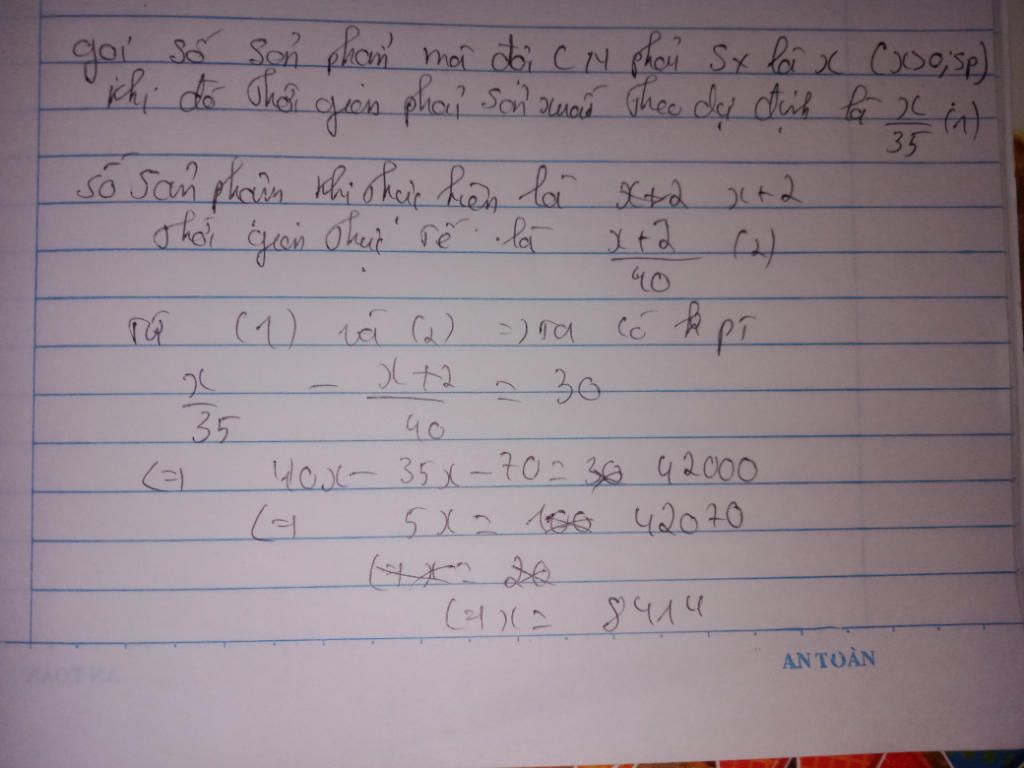 gọi số sản phẩm mà đội CN phải sx là x (x>0; sp)
khi đó thời gian phải sản xuất theo dự định là x/35 (1)
số sản phẩm khi thực hiện là x+2 x+2
thời gian thực tế là x+2/40 (2)
từ (1) và (2) => ta có pt
x/35 - x+2/40 = 30
(=) 40x - 35x - 70 = 30 42000
(=) 5x = 100 42070
(=) x = 20
(=) x = 8414
AN TOÀN